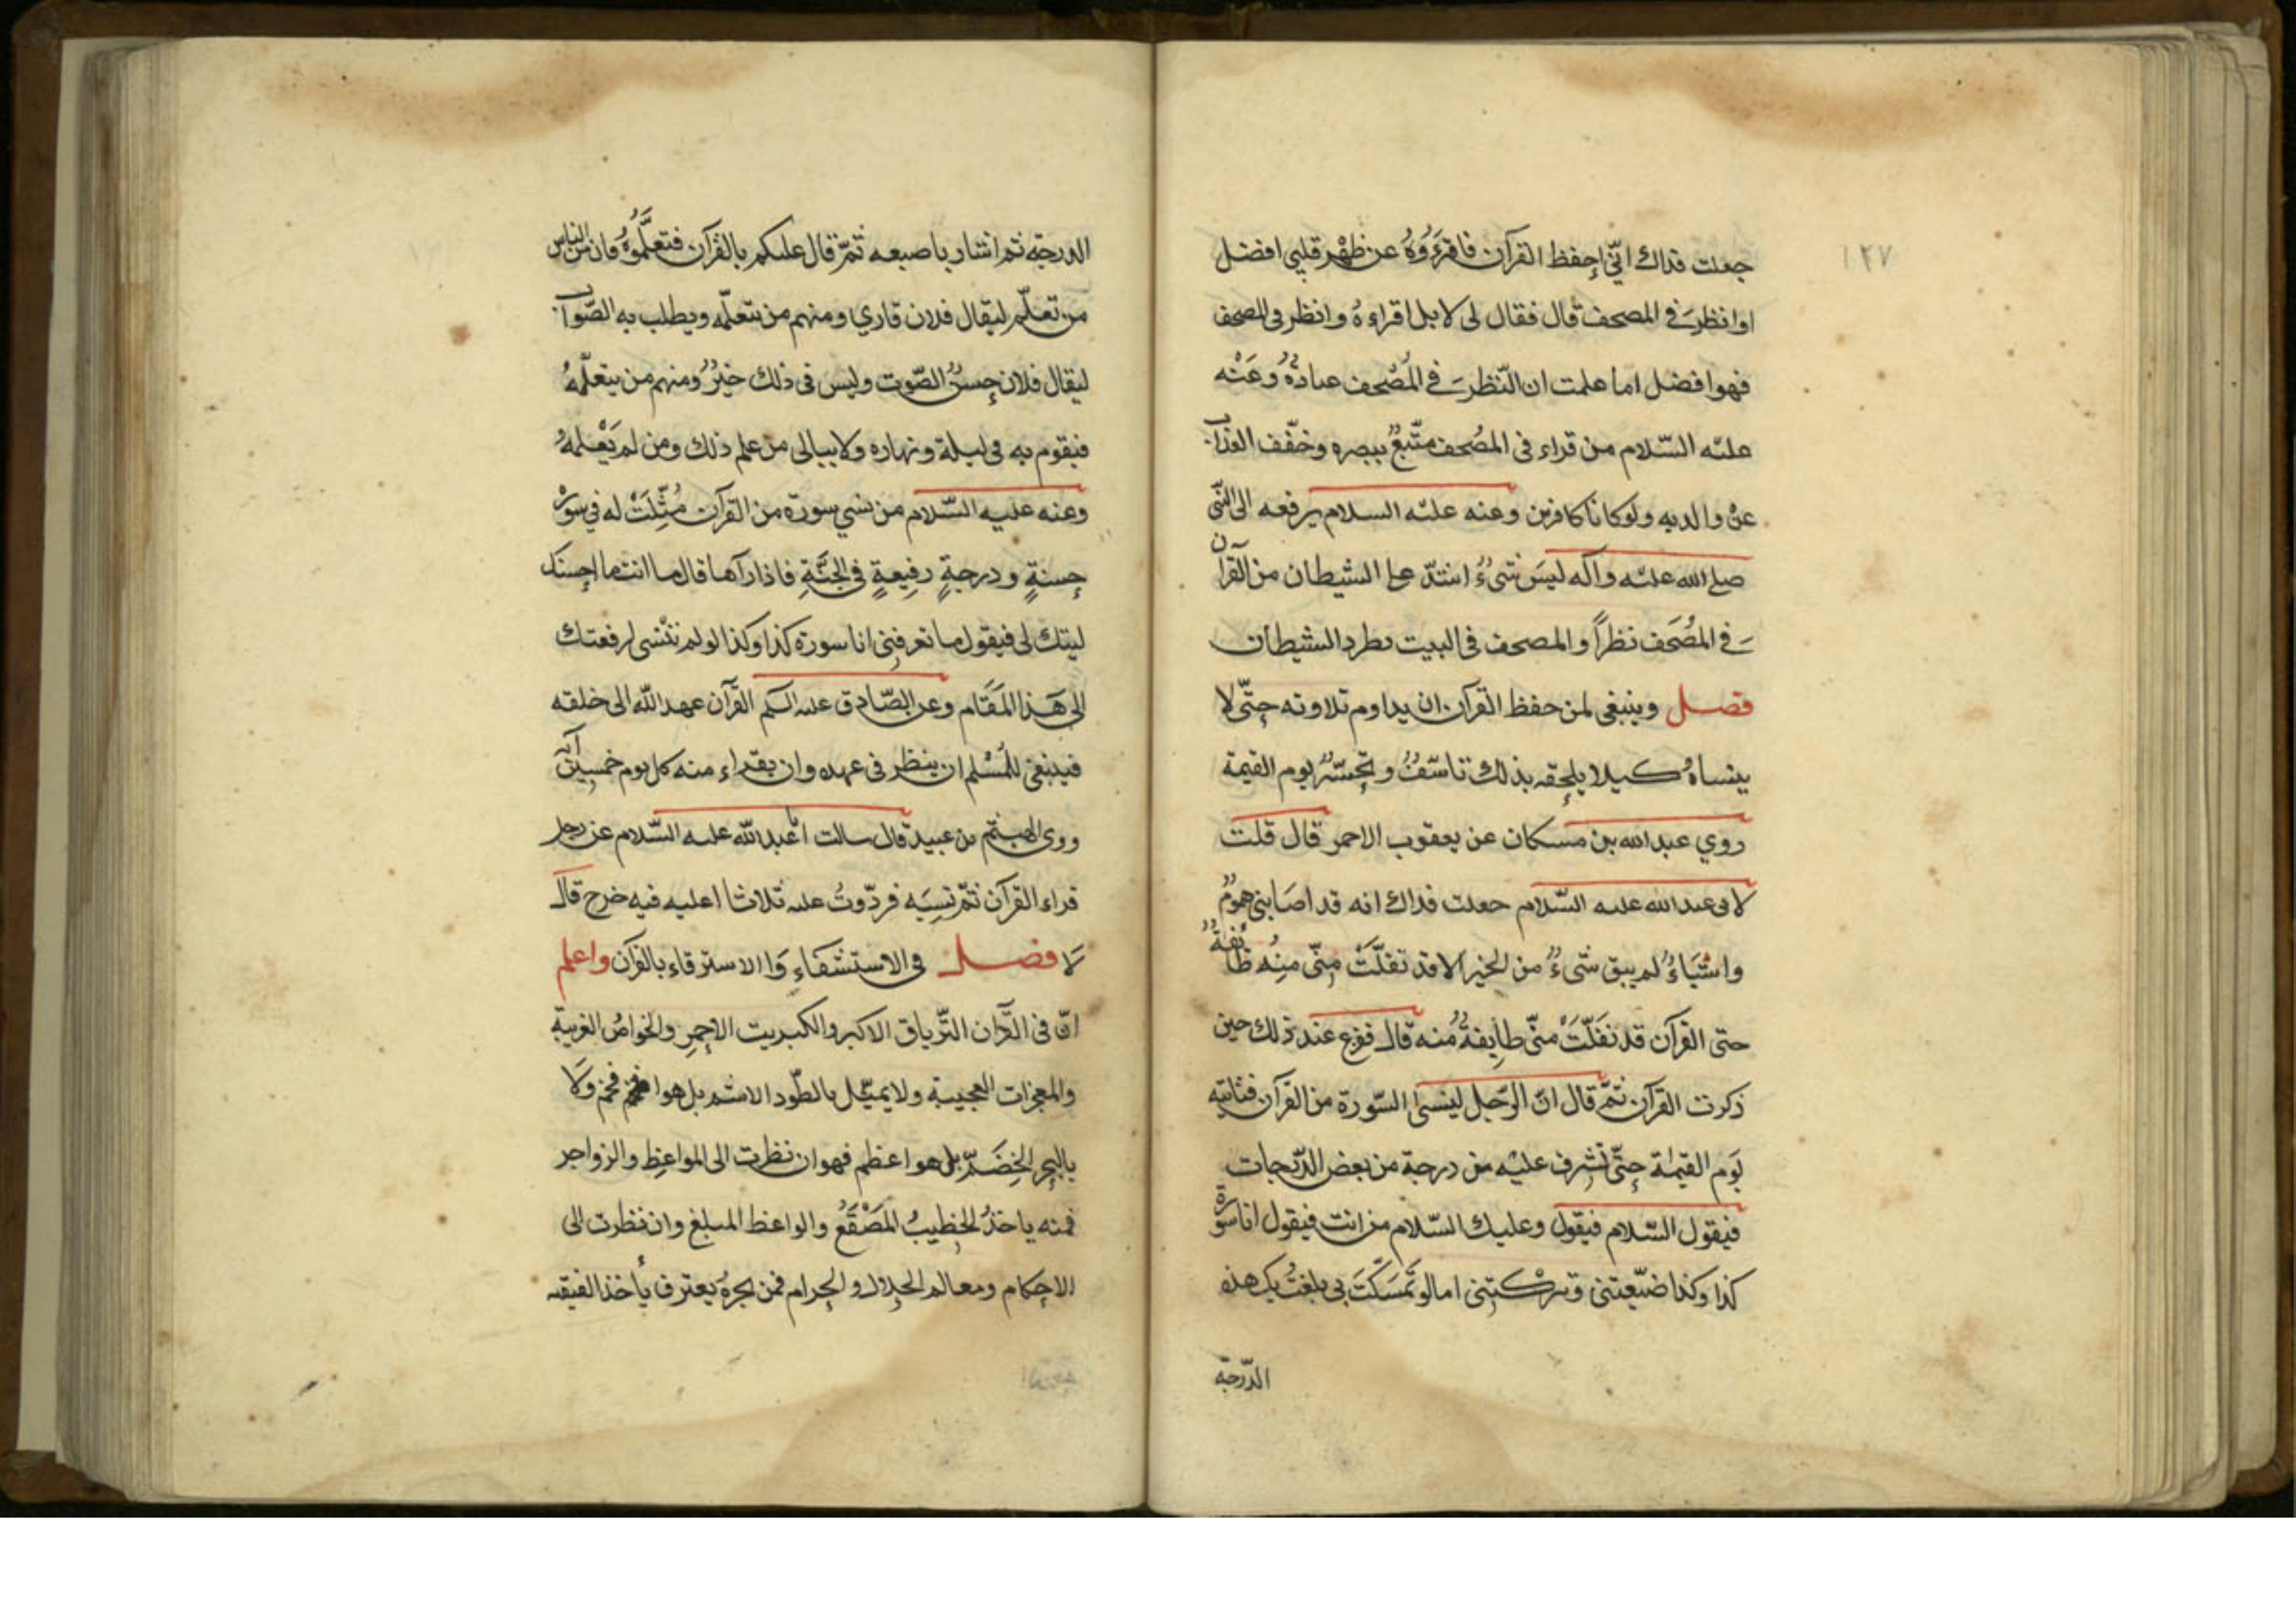 ١٢٧
جعلت فداك انّي احفظ القرآن فاقرءوه عن ظهر قلبي افضل
او انظر في المصحف قال فقال لى لا بل اقراءه وانظر فى المصحف
فهو افضل اما علمت ان النّظر في المصحف عبادة وعنه
عليه السّلام من قراء فى المصحف متّع ببصره وخفّف العذاب
عن والديه ولو كانا كافرين وعنه عليه السلام يرفعه الى النّبى
صلى الله عليه وآله ليس شىء اشدّ على الشيطان من القرآن
في المصحف نظراً والمصحف فى البيت يطرد الشيطان
فصل وينبغى لمن حفظ القرآن ان يداوم تلاوته حتّى لا
ينساه كيلا يلحقه بذلك تاسّف وتحسّر يوم القيمة
روي عبد الله بن مسكان عن يعقوب الاحمر قال قلت
لابى عبد الله عليه السّلام جعلت فداك انه قد اصابنى هموم
واشياء لم يبق شىء من الخير الا قد تفلّت منّى منه طائفة
حتى القرآن قد تفلّت منّى طايفة منه قال ففزع عند ذلك حين
ذكرت القرآن ثمّ قال انّ الرّجل لينسى السّورة من القرآن فتاتيه
يوم القيمة حتّى تشرف عليه من درجة من بعض الدّرجات
فيقول السّلام فيقول وعليك السّلام من انت فيقول انا سورة
كذا وكذا ضيّعتنى وتركتنى اما لو تمسّكت بى بلغت بك هذه
الدّرجة
الدرجة ثم اشار باصبعه ثمّ قال عليكم بالقرآن فتعلّموه فان من الناس
من تعلّم ليقال فلان قاري ومنهم من يتعلّمه ويطلب به الصّواب
ليقال فلان حسن الصّوت وليس فى ذلك خير ومنهم من يتعلّمه
فيقوم به فى ليلة ونهاره ولا يبالى من علم ذلك ومن لم يعلمه
وعنه عليه السّلام من نسي سورة من القرآن مُثّلت له في سور
حسنةٍ ودرجةٍ رفيعةٍ في الجنّةِ فاذا رآها قال ما انت ما احسنك
ليتك لى فيقول ما تعرفنى انا سورة كذا وكذا لو لم تنسى لرفعتك
الى هذا المقام وعن الصّادق عليه السلم القرآن عهد الله الى خلقه
فينبغى للمسلم ان ينظر فى عهده وان يقراء منه كل يوم خمسين آية
وروى الهيثم بن عبيد قال سالت ابا عبد الله عليه السّلام عن رجل
قراء القرآن ثمّ نسيه فردّوتُ عليه ثلاثا اعليه فيه خرج قال
لا فصل فى الاستشفاء والاسترقاء بالقرآن واعلم
انّ فى القرآن التّرياق الاكبر والكبريت الاحمر والخواصّ الغريبة
والمعجزات العجيبة ولا يمثّل بالطّود الاشم بل هو افخم ولا
بالبحر الخضمّ بل هو اعظم فهو ان نظرت الى المواعظ والزواجر
فمنه ياخذ الخطيب المصقع والواعظ المبلغ وان نظرت الى
الاحكام ومعالم الحلال والحرام فمن بحره يعترف يأخذ الفيقه